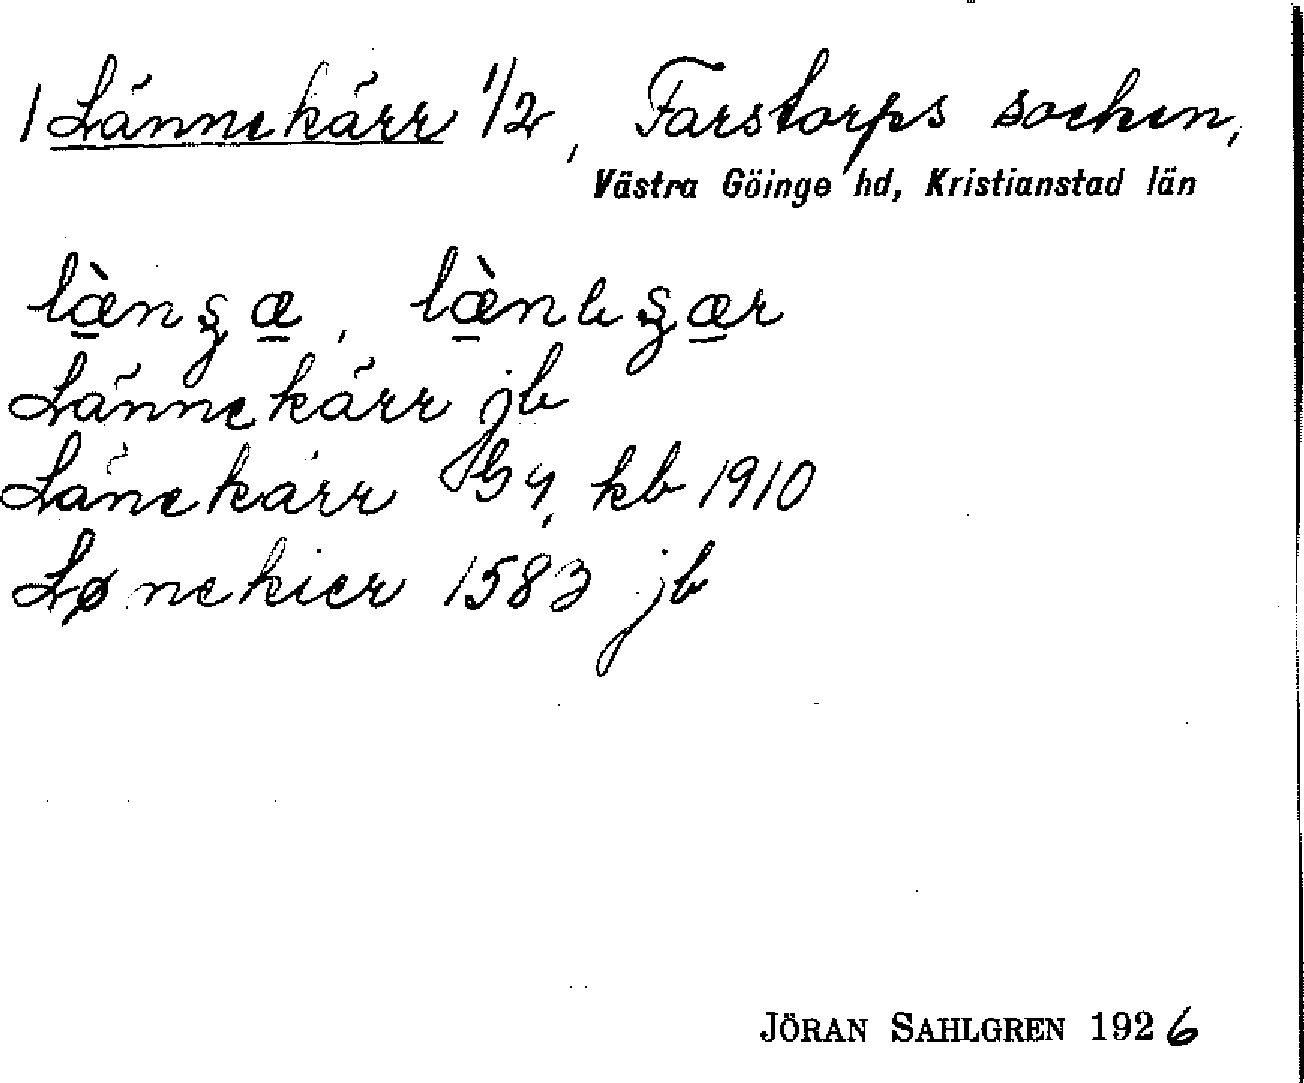 1 Lännekärr 1/2, Farstorps socken,
Västra Göinge hd, Kristianstad län
Lännekärr jb
Länekärr GS4, kb 1910
Lønekier 1583 jb
JÖRAN SAHLGREN 1926